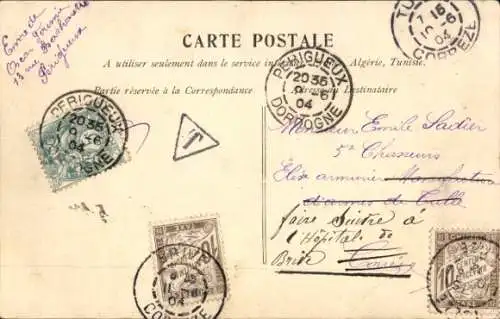 Envoi de
Oscar
13 rue
Périgueux
CARTE POSTALE
A utiliser seulement dans le service Algérie, Tunisie.
Partie réservée à la Correspondance
Adresse du Destinataire
PERIGUEUX
20 35
9 -6
04
DORDOGNE
PERIGUEUX
20 35
9 -6
04
GNE
TU
7 15
10 -6
04
CORREZE
T
Monsieur Emile Sadier
5e Chasseurs
Elève armurier Manufacture
d'armes de Tulle
faire suivre à
l'Hôpital de
Brive Corrèze
10
BRIVE
04
CORREZE
10